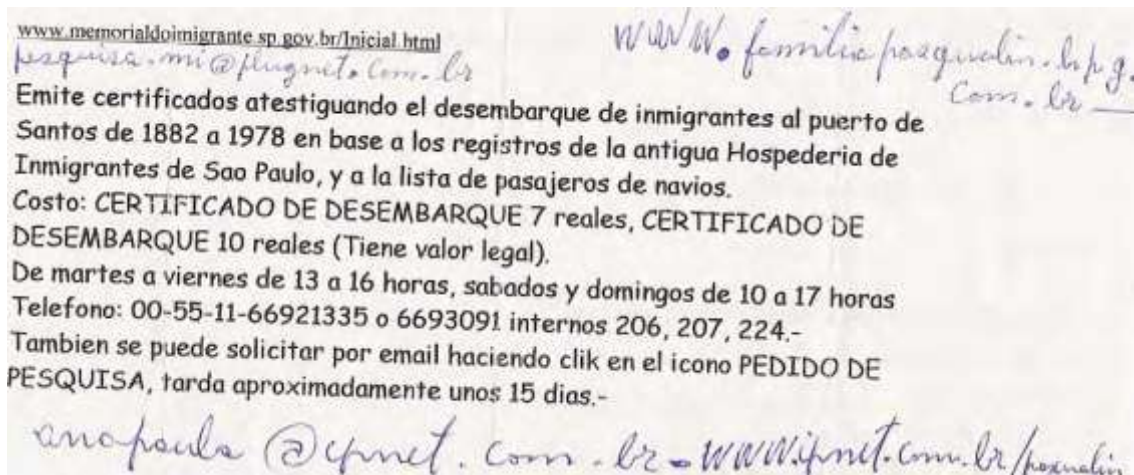 www.memorialdoimigrante.sp.gov.br/Inicial.html
www.familiapasqualin.hpg.
pesquisa.mi@plugnet.com.br
com.br
Emite certificados atestiguando el desembarque de inmigrantes al puerto de
Santos de 1882 a 1978 en base a los registros de la antigua Hospederia de
Inmigrantes de Sao Paulo, y a la lista de pasajeros de navios.
Costo: CERTIFICADO DE DESEMBARQUE 7 reales, CERTIFICADO DE
DESEMBARQUE 10 reales (Tiene valor legal).
De martes a viernes de 13 a 16 horas, sabados y domingos de 10 a 17 horas
Telefono: 00-55-11-66921335 o 6693091 internos 206, 207, 224.-
Tambien se puede solicitar por email haciendo clik en el icono PEDIDO DE
PESQUISA, tarda aproximadamente unos 15 dias.-
anapaula